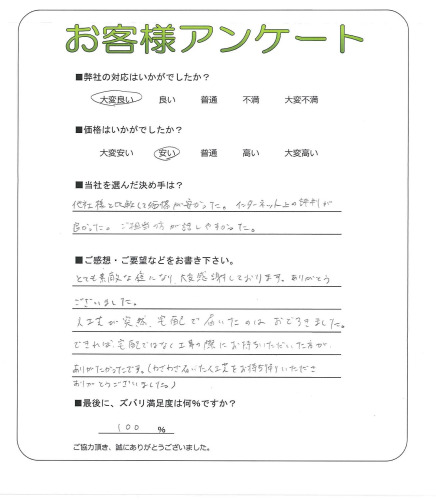 お客様アンケート
■弊社の対応はいかがでしたか？
大変良い 良い 普通 不満 大変不満
■価格はいかがでしたか？
大変安い 安い 普通 高い 大変高い
■当社を選んだ決め手は？
他社様と比較して価格が安かった。インターネット上の評判が
良かった。ご担当の方が話しやすかった。
■ご感想・ご要望などをお書き下さい。
とても素敵な庭になり、大変感謝しております。ありがとう
ございました。
人工芝が突然、宅配で届いたのはおどろきました。
できれば、宅配ではなく工事の際にお持ちいただいた方が、
ありがたかったです。(わざわざ届いた人工芝をお持ち帰りいただき
ありがとうございました。)
■最後に、ズバリ満足度は何%ですか？
100 %
ご協力頂き、誠にありがとうございました。